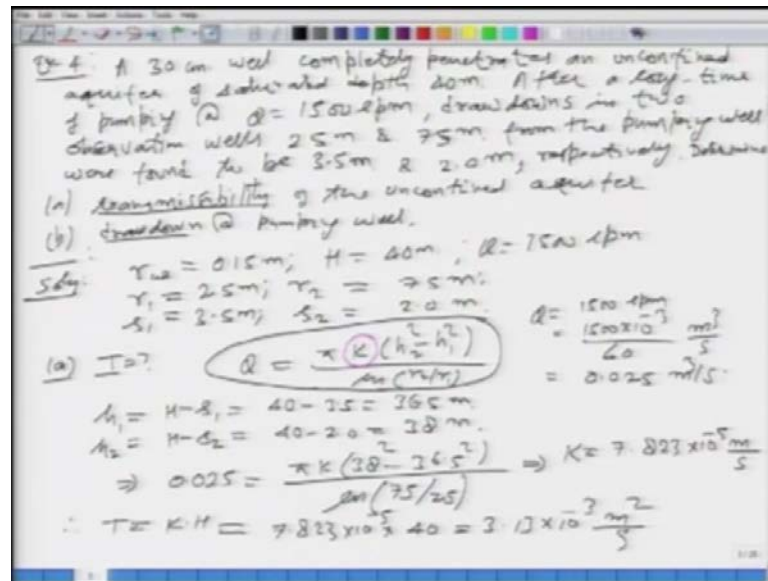 Ex 4: A 30 cm well completely penetrates an unconfined
aquifer of saturated depth 40m. After a long-time
of pumping @ Q = 1500 lpm, drawdowns in two
observation wells 25m & 75m from the pumping well
were found to be 3.5m & 2.0m, respectively. Determine
(a) transmissibility of the unconfined aquifer
(b) drawdown @ pumping well.
Soln: rw = 0.15m; H = 40m; Q = 1500 lpm
r1 = 25m; r2 = 75m;
s1 = 3.5m; s2 = 2.0 m.
Q = 1500 lpm
= 1500×10^-3 / 60 m^3/s
= 0.025 m^3/s.
(a) T=? Q = π K (h2^2 - h1^2) / ln(r2/r1)
h1 = H-s1 = 40-3.5 = 36.5 m.
h2 = H-s2 = 40-2.0 = 38 m.
⇒ 0.025 = π K (38^2 - 36.5^2) / ln(75/25) ⇒ K = 7.823×10^-5 m/s
∴ T = K.H = 7.823×10^-5 × 40 = 3.13×10^-3 m^2/s